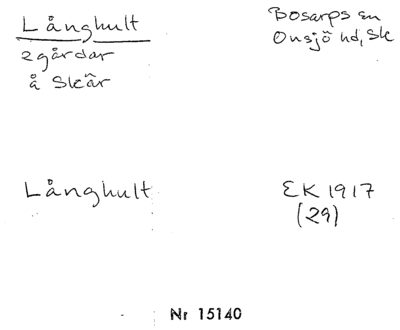 Långhult
2 gårdar
å Skär
Bosarps sn
Onsjö hd, Sk
Långhult
EK 1917
(29)
Nr 15140